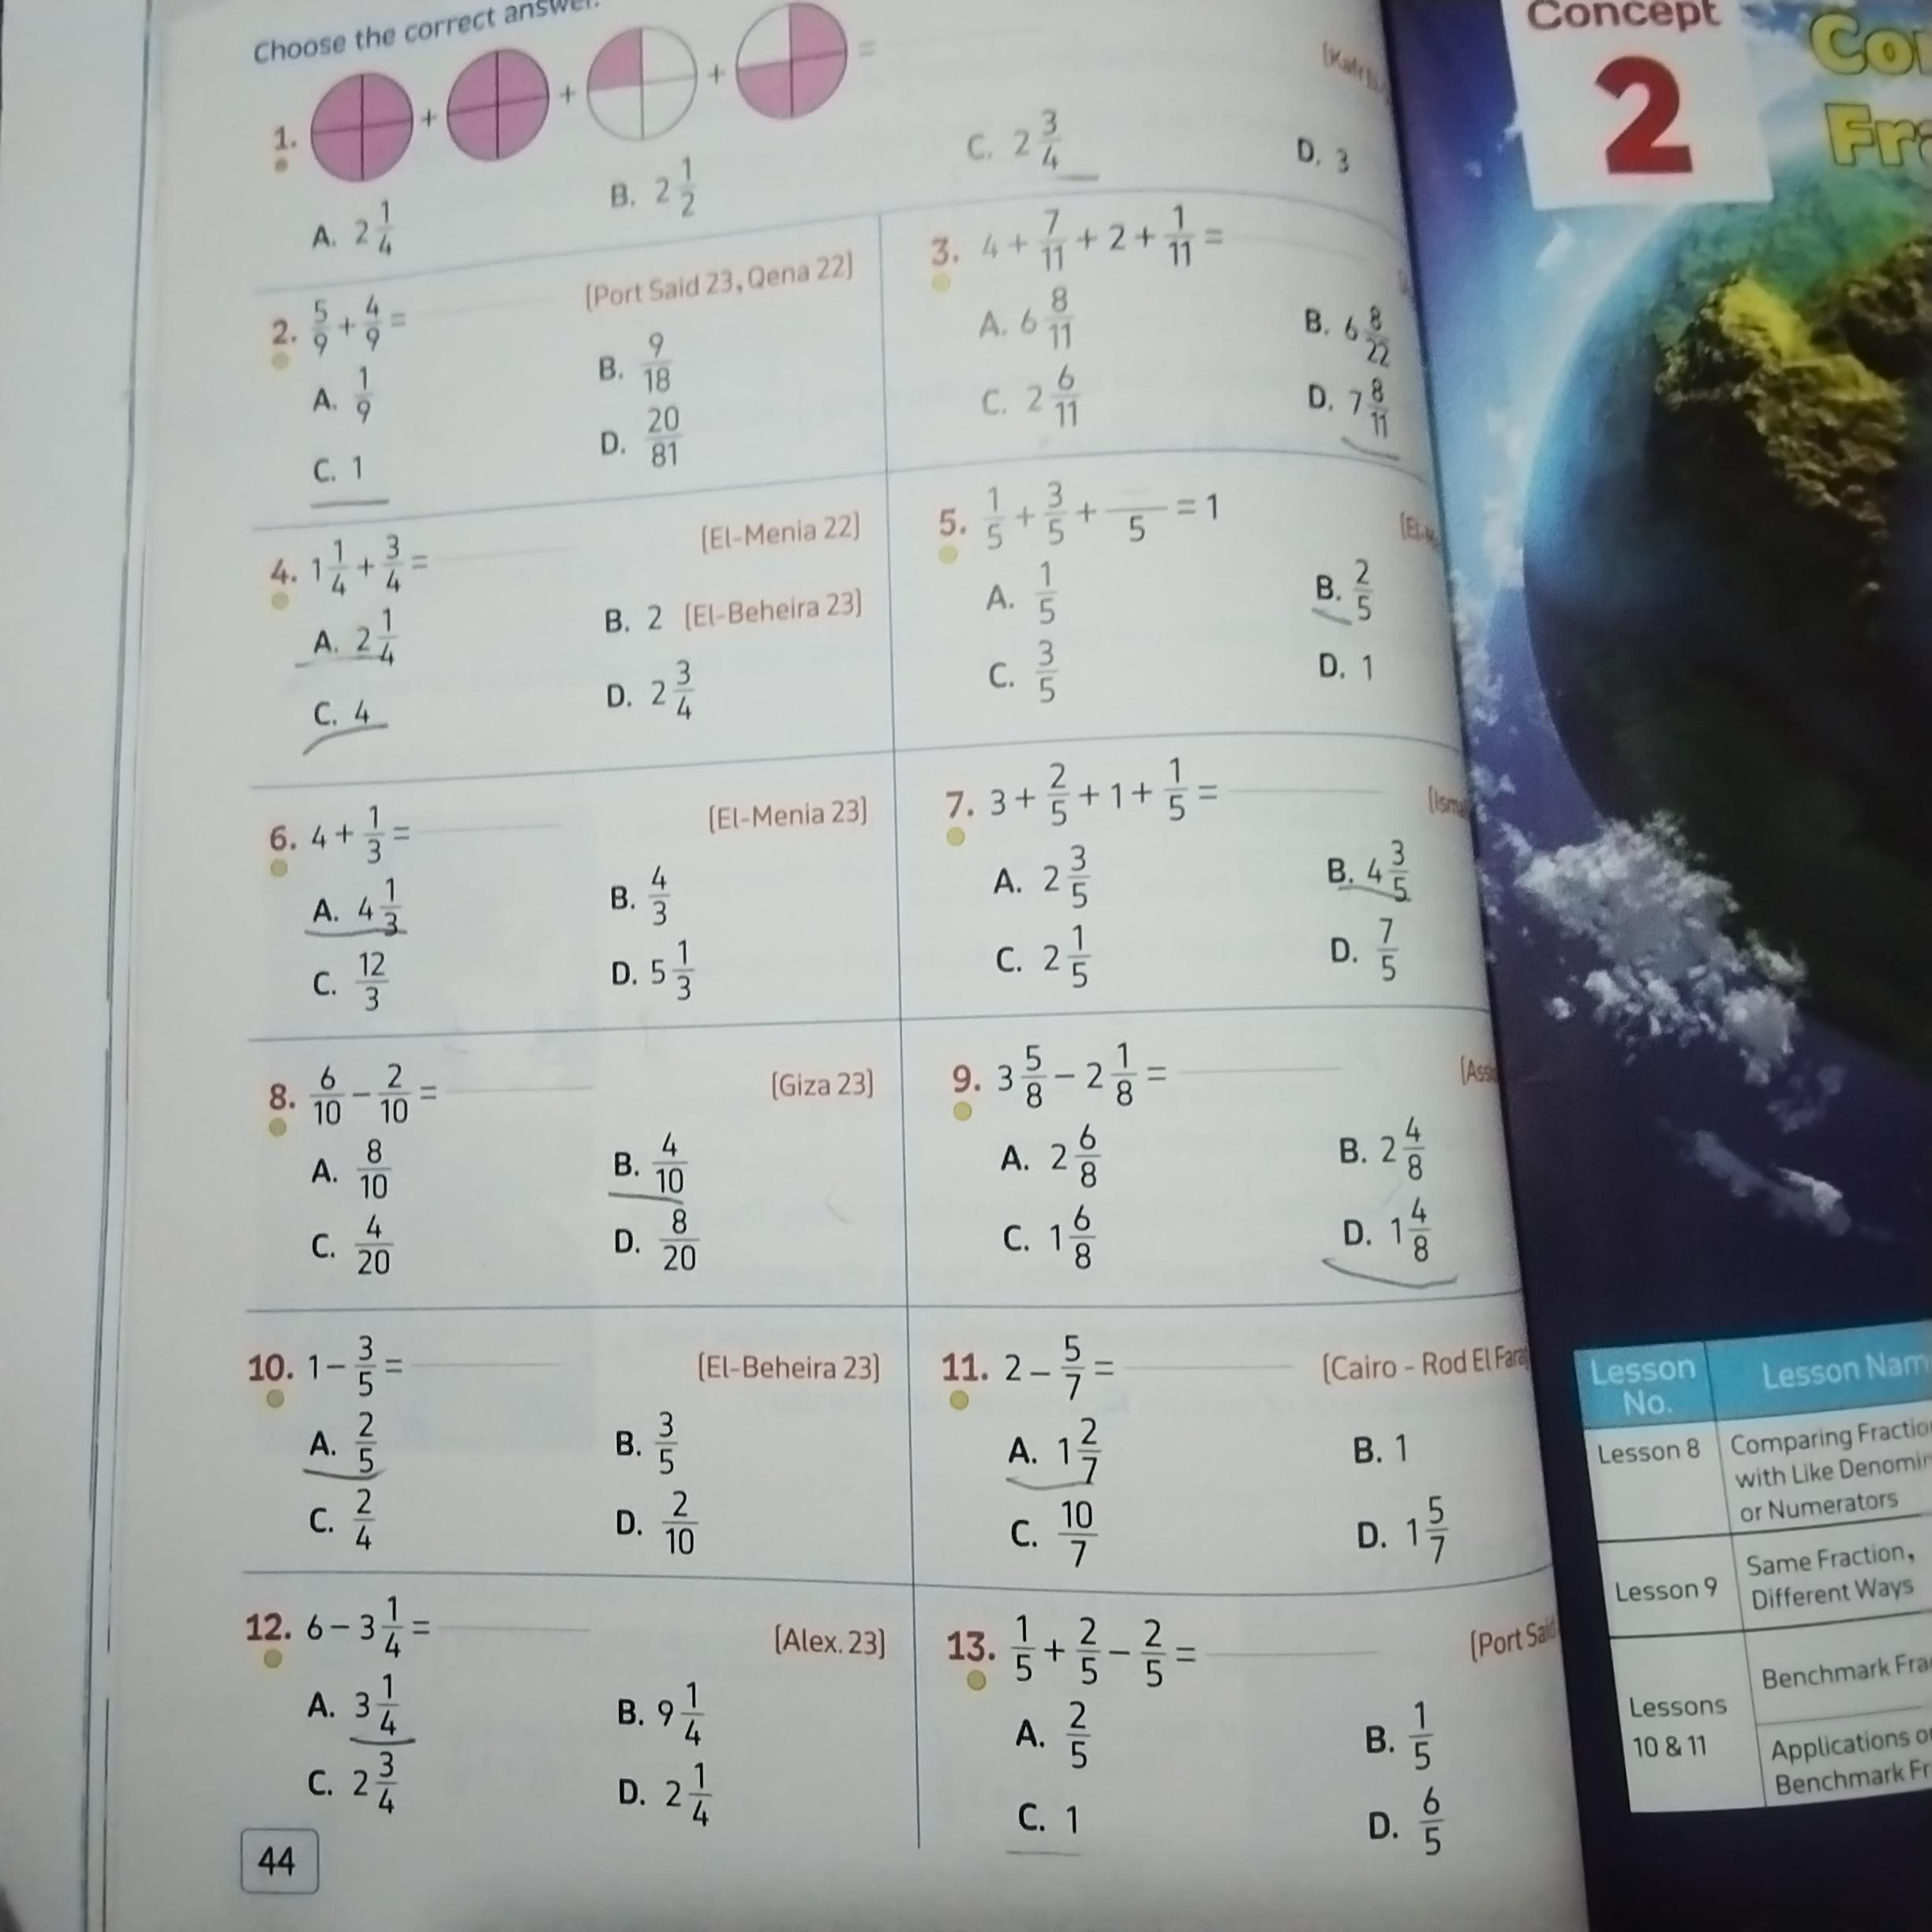 Choose the correct answer.
1. + + + =
A. 2 1/4 B. 2 1/2 C. 2 3/4 D. 3
2. 5/9 + 4/9 = [Port Said 23, Qena 22]
A. 1/9 B. 9/18
C. 1 D. 20/81
3. 4 + 7/11 + 2 + 1/11 =
A. 6 8/11 B. 6 8/22
C. 2 6/11 D. 7 8/11
4. 1 1/4 + 3/4 = [El-Menia 22]
A. 2 1/4 B. 2 [El-Beheira 23]
C. 4 D. 2 3/4
5. 1/5 + 3/5 + __/5 = 1
A. 1/5 B. 2/5
C. 3/5 D. 1
6. 4 + 1/3 = [El-Menia 23]
A. 4 1/3 B. 4/3
C. 12/3 D. 5 1/3
7. 3 + 2/5 + 1 + 1/5 =
A. 2 3/5 B. 4 3/5
C. 2 1/5 D. 7/5
8. 6/10 − 2/10 = [Giza 23]
A. 8/10 B. 4/10
C. 4/20 D. 8/20
9. 3 5/8 − 2 1/8 =
A. 2 6/8 B. 2 4/8
C. 1 6/8 D. 1 4/8
10. 1 − 3/5 = [El-Beheira 23]
A. 2/5 B. 3/5
C. 2/4 D. 2/10
11. 2 − 5/7 = [Cairo - Rod El Farag
A. 1 2/7 B. 1
C. 10/7 D. 1 5/7
12. 6 − 3 1/4 = [Alex. 23]
A. 3 1/4 B. 9 1/4
C. 2 3/4 D. 2 1/4
13. 1/5 + 2/5 − 2/5 = [Port Said
A. 2/5 B. 1/5
C. 1 D. 6/5
44
Concept
2
Lesson No. Lesson Nam
Lesson 8 Comparing Fractio
with Like Denomi
or Numerators
Lesson 9 Same Fraction,
Different Ways
Lessons
10 & 11
Benchmark Fra
Applications o
Benchmark Fr